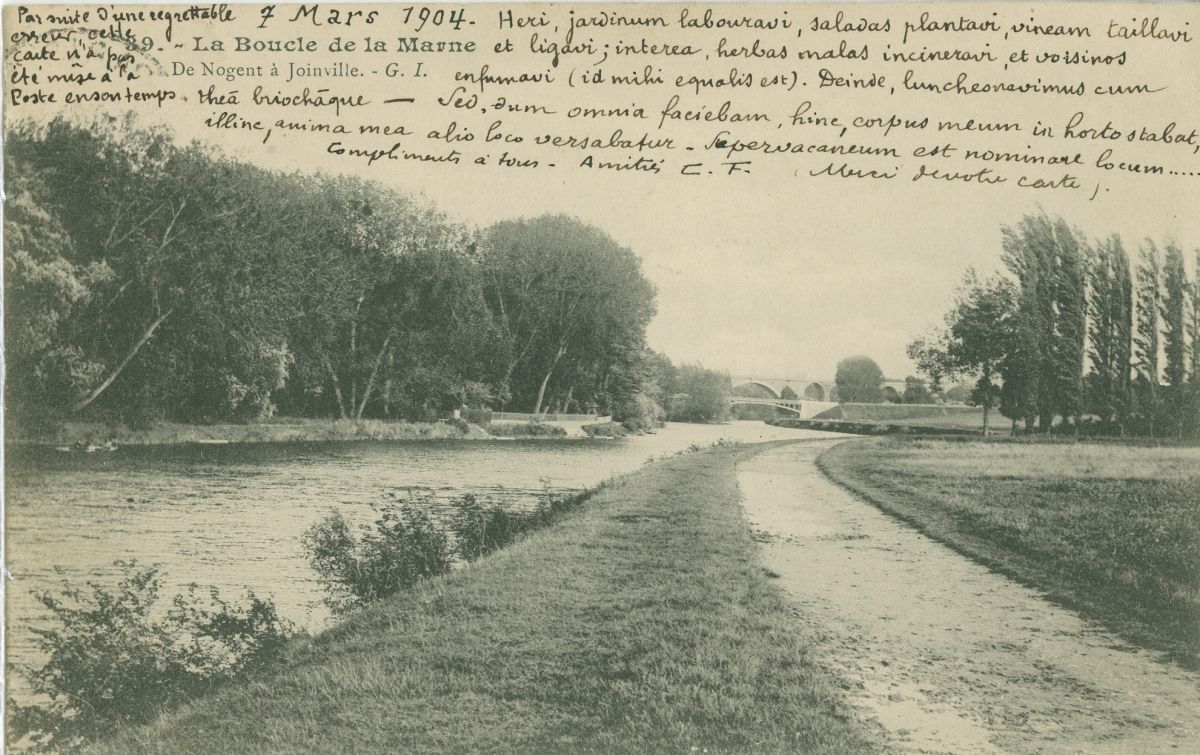 Par suite d'une regrettable
erreur, cette
carte n'a pas
été mise à la
Poste en son temps.
7 Mars 1904.
39. - La Boucle de la Marne
De Nogent à Joinville. - G. I.
Heri, jardinum labouravi, saladas plantavi, vineam taillavi
et ligavi; interea, herbas malas incineravi, et voisinos
enfumavi (id mihi equalis est). Deinde, luncheonavimus cum
theā briochāque — Sed, dum omnia faciebam, hinc, corpus meum in horto stabat,
illinc, anima mea alio loco versabatur - Supervacaneum est nominare locum.....
Compliments à tous - Amitiés C. F. (Merci de votre carte).